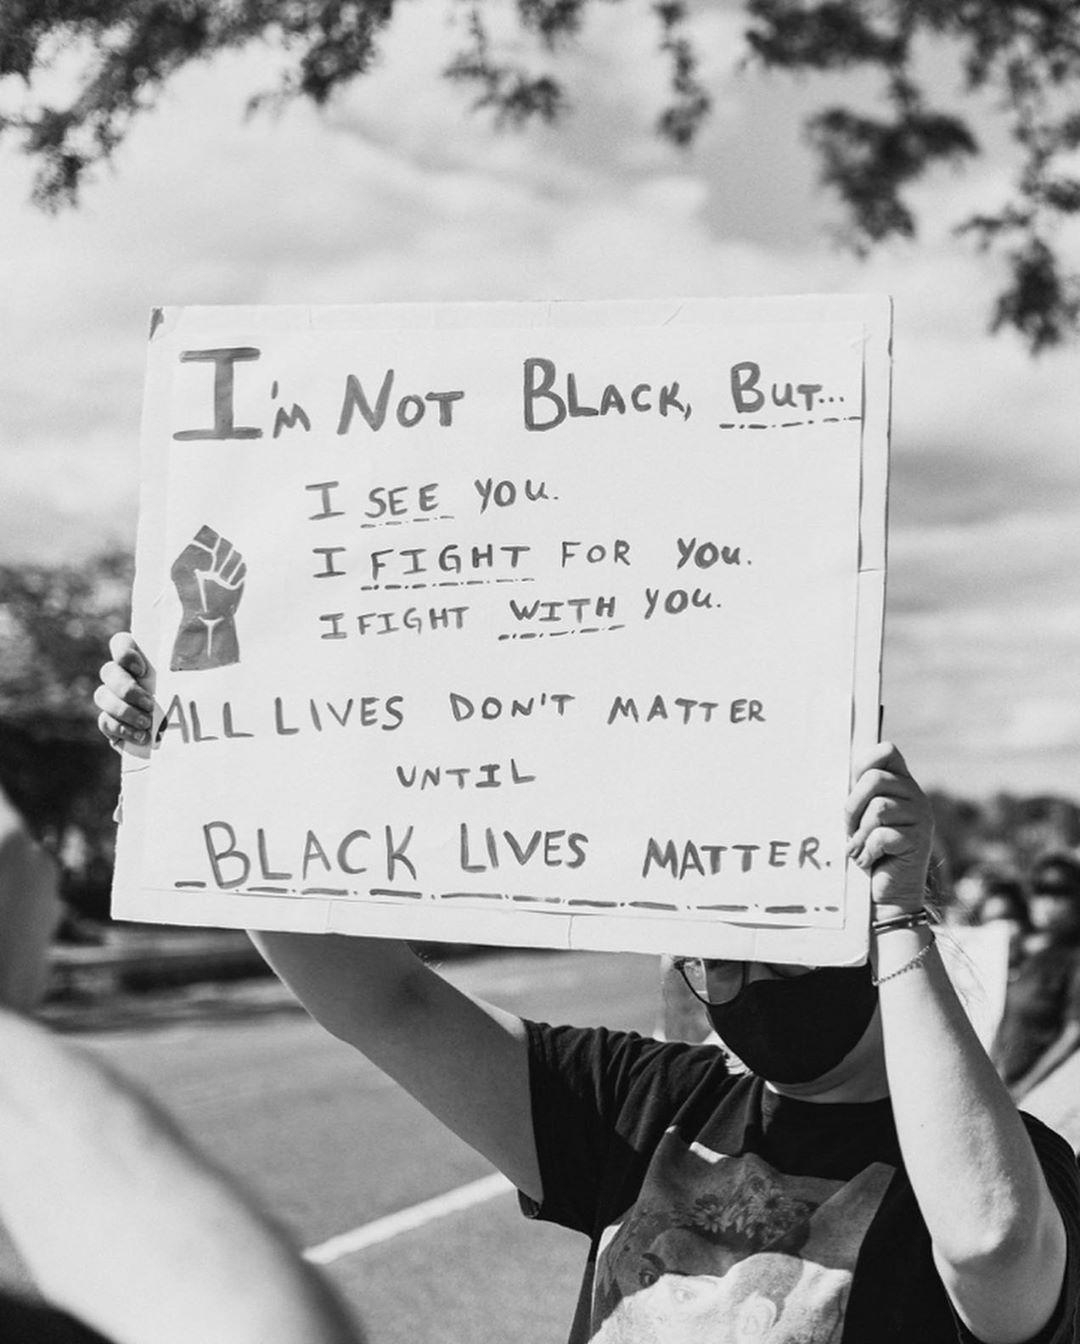 I'm NOT BLACK, BUT...
I SEE YOU.
I FIGHT FOR YOU.
I FIGHT WITH YOU.
ALL LIVES DON'T MATTER
UNTIL
BLACK LIVES MATTER.